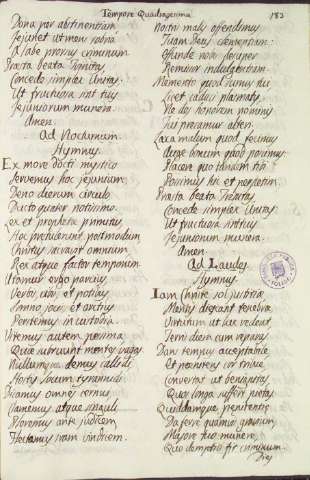 Tempore Quadragesima
183
Dona per abstinentiam
Jejunet ut mens sobria
A labe prorsus criminum
Præsta beata Trinitas
Concede simplex Unitas
Ut fructuosa sint tuis
Jejuniorum munera.
Amen
Ad Nocturnum
Hymnus
Ex more docti mystico
Servemus hoc jejunium
Deno dierum circulo
Ducto quater notissimo.
Lex et prophetæ primitus
Hoc prætulerunt postmodum
Christus sacravit omnium
Rex atque factor temporum.
Utamur ergo parcius
Verbis, cibis, et potibus
Somno, jocis, et arctius
Perstemus in custodia.
Vitemus autem pessima
Quæ subruunt mentes vagas
Nullumque demus callidi
Hostis locum tyrannidi
Dicamus omnes cernui
Clamemus atque singuli
Ploremus ante judicem
Flectamus iram vindicem.
Nostris malis offendimus
Tuam Deus clementiam
Effunde nobis desuper
Remissor indulgentiam
Memento quod sumus tui
Licet caduci plasmatis
Ne des honorem nominis
Tui precamur alteri.
Laxa malum quod fecimus
Auge bonum quod poscimus
Placere quo tandem tibi
Possimus hic et perpetim.
Præsta beata Trinitas
Concede simplex Unitas
Ut fructuosa sint tuis
Jejuniorum munera.
Amen
Ad Laudes
Hymnus
Iam Christe sol justitiæ
Mentis dehiscant tenebræ
Virtutum ut lux redeat
Terris diem cum reparas
Dans tempus acceptabile
Et poenitens cor tribue
Convertat ut benignitas
Quos longa suffert pietas
Quiddamque poenitentiæ
Da ferre quamvis gravium
Majore tuo munere
Quo demptio fit criminum.
Dies